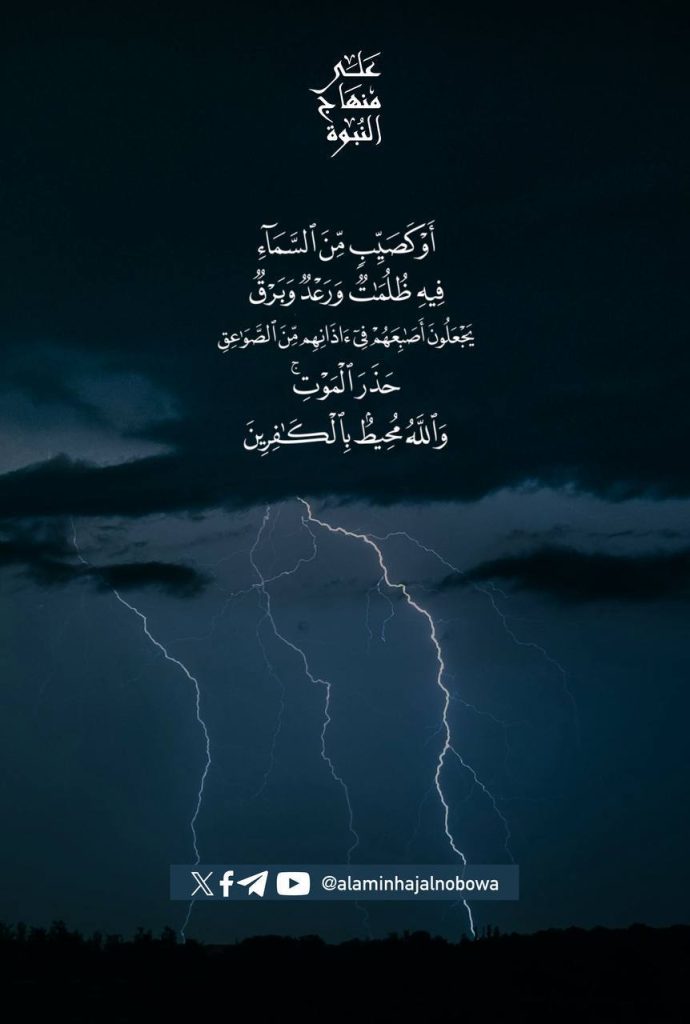 عَلَى
مِنهَاج
النُّبُوة
أَوْ كَصَيِّبٍ مِّنَ ٱلسَّمَآءِ
فِيهِ ظُلُمَٰتٌ وَرَعْدٌ وَبَرْقٌ
يَجْعَلُونَ أَصَٰبِعَهُمْ فِىٓ ءَاذَانِهِم مِّنَ ٱلصَّوَٰعِقِ
حَذَرَ ٱلْمَوْتِ ۚ
وَٱللَّهُ مُحِيطٌۢ بِٱلْكَٰفِرِينَ
@alaminhajalnobowa